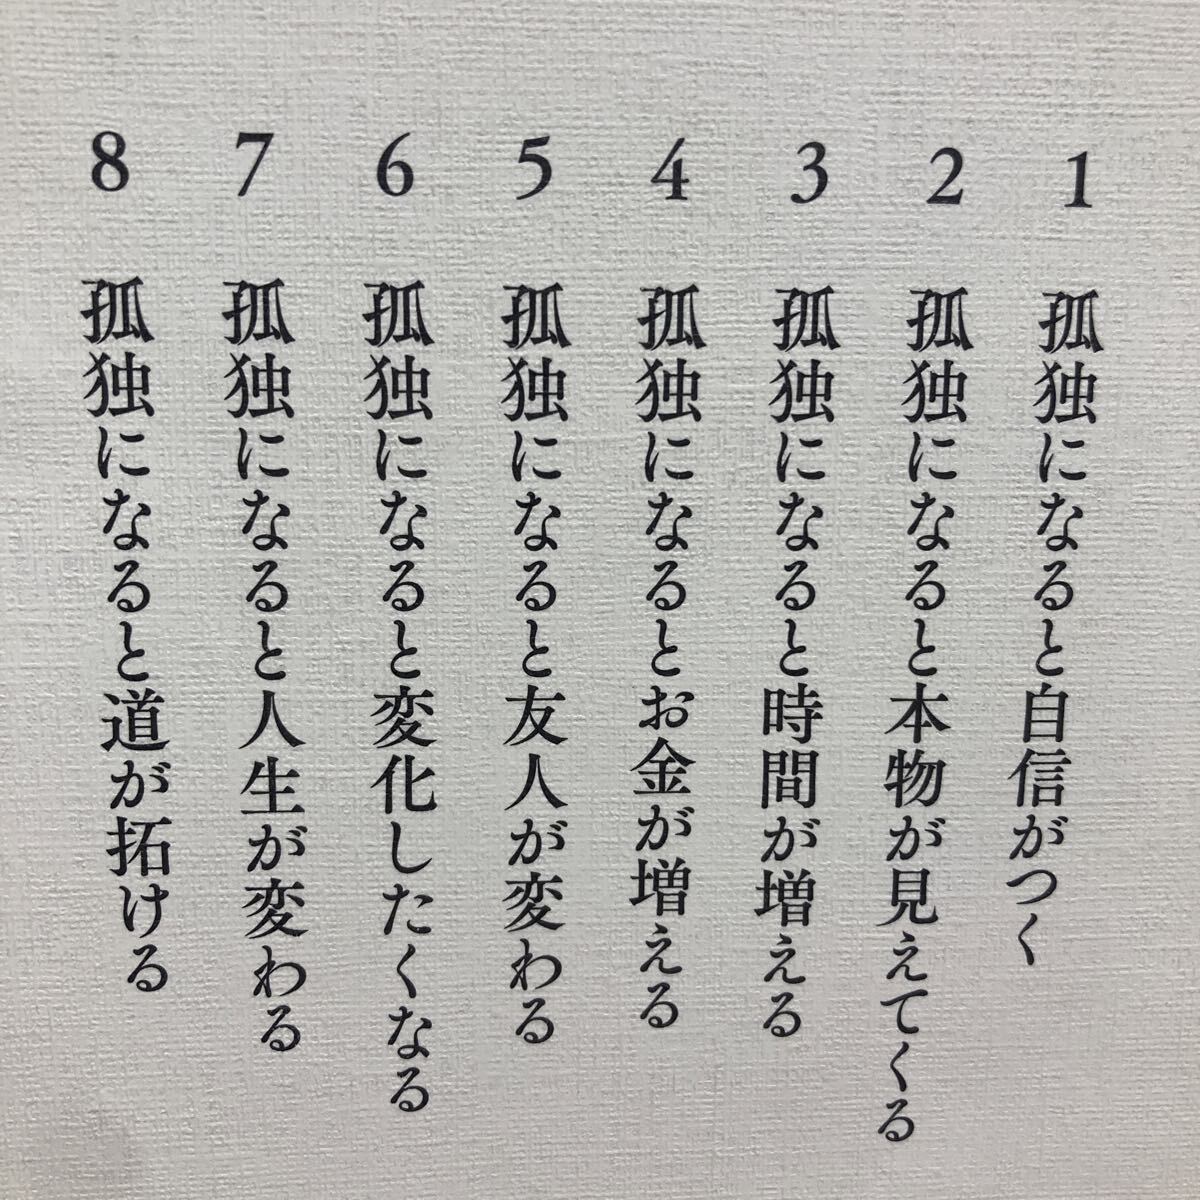 1 孤独になると自信がつく
2 孤独になると本物が見えてくる
3 孤独になると時間が増える
4 孤独になるとお金が増える
5 孤独になると友人が変わる
6 孤独になると変化したくなる
7 孤独になると人生が変わる
8 孤独になると道が拓ける